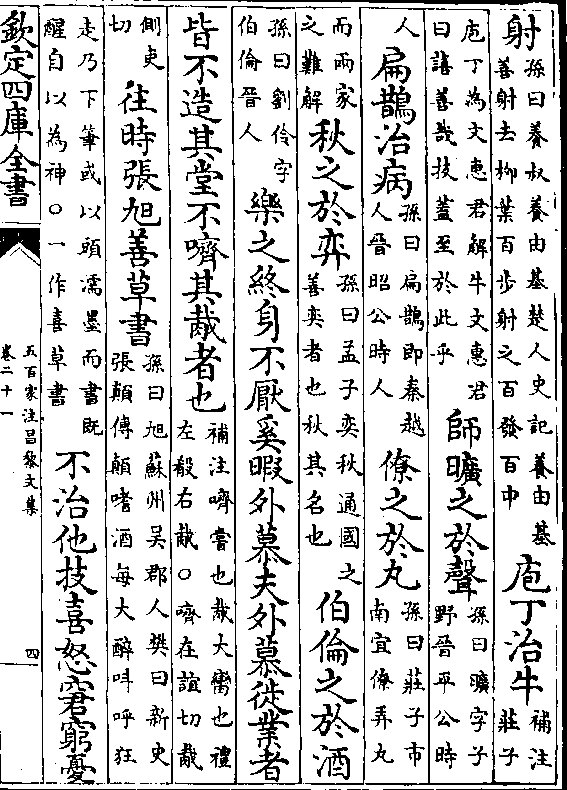 射孫曰養叔養由基楚人史記養由基善射去柳葉百步射之百發百中庖丁治牛補注莊子
庖丁為文惠君解牛文惠君曰譆善哉技蓋至於此乎師曠之於聲孫曰曠字子野晉平公時
人扁鵲治病孫曰扁鵲即秦越人晉昭公時人僚之於丸孫曰莊子市南宜僚弄丸
而兩家之難解秋之於弈孫曰孟子奕秋通國之善奕者也秋其名也伯倫之於酒
孫曰劉伶字伯倫晉人樂之終身不厭奚暇外慕夫外慕徙業者
皆不造其堂不嚌其胾者也補注嚌嘗也胾大臠也禮左殽右胾○嚌在誼切胾
側吏切往時張旭善草書孫曰旭蘇州吳郡人樊曰新史張顛傳顛嗜酒每大醉呌呼狂
走乃下筆或以頭濡墨而書既醒自以為神○一作喜草書不治他技喜怒窘窮憂
欽定四庫全書
五百家注昌黎文集
卷二十一
四